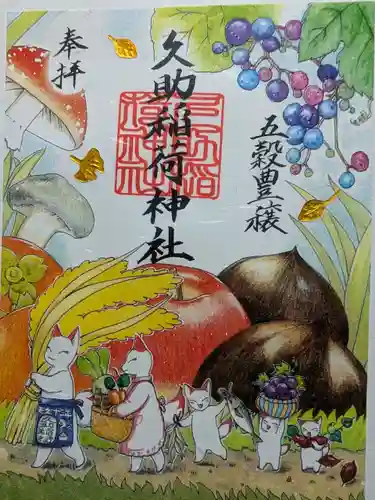 五穀豊穣
久助稲荷神社
奉拝